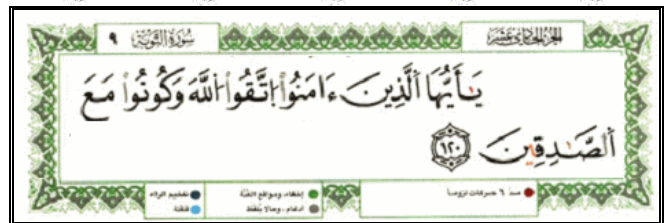 الجزء الحادي عشر
سورة التوبة ٩
يَـٰٓأَيُّهَا ٱلَّذِينَ ءَامَنُوا۟ ٱتَّقُوا۟ ٱللَّهَ وَكُونُوا۟ مَعَ
ٱلصَّـٰدِقِينَ ١٢٠
مد ٦ حركات لزوماً
إخفاء، ومواقع الغنة
ادغام، ومالا يلفظ
تفخيم الراء
قلقلة